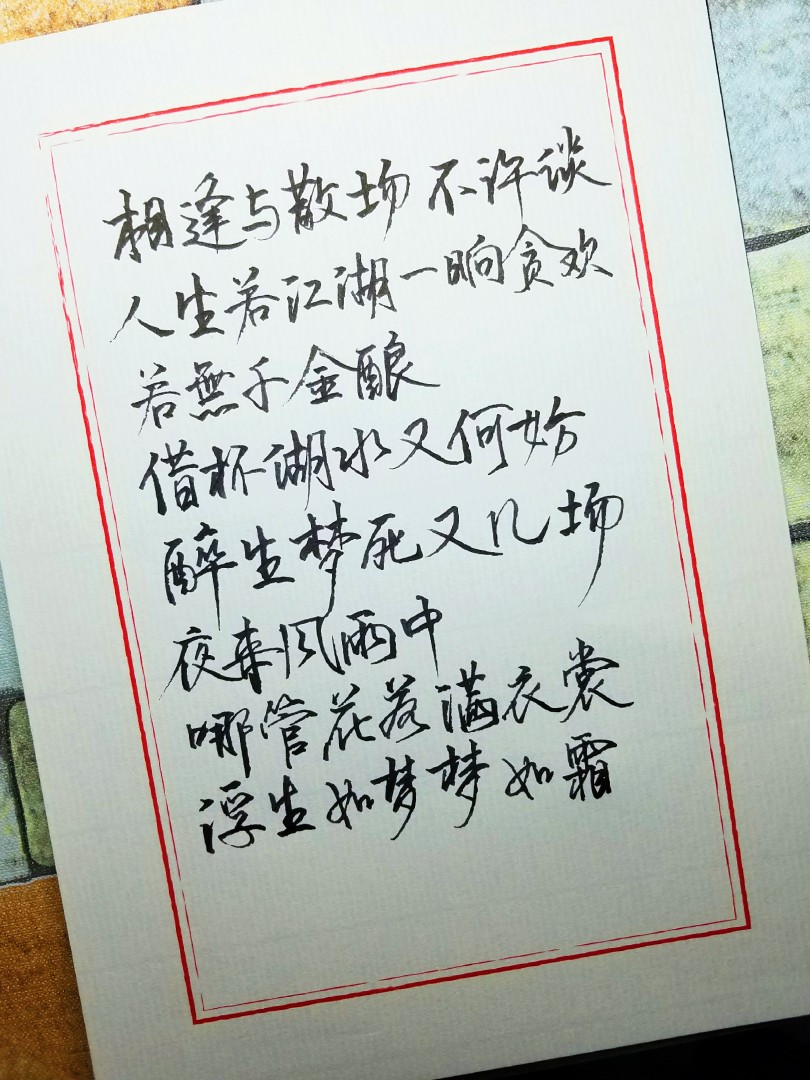 相逢与散场 不许谈
人生若江湖一晌贪欢
若無千金酿
借杯湖水又何妨
醉生梦死又几场
夜来风雨中
哪管花落满衣裳
浮生如梦梦如霜